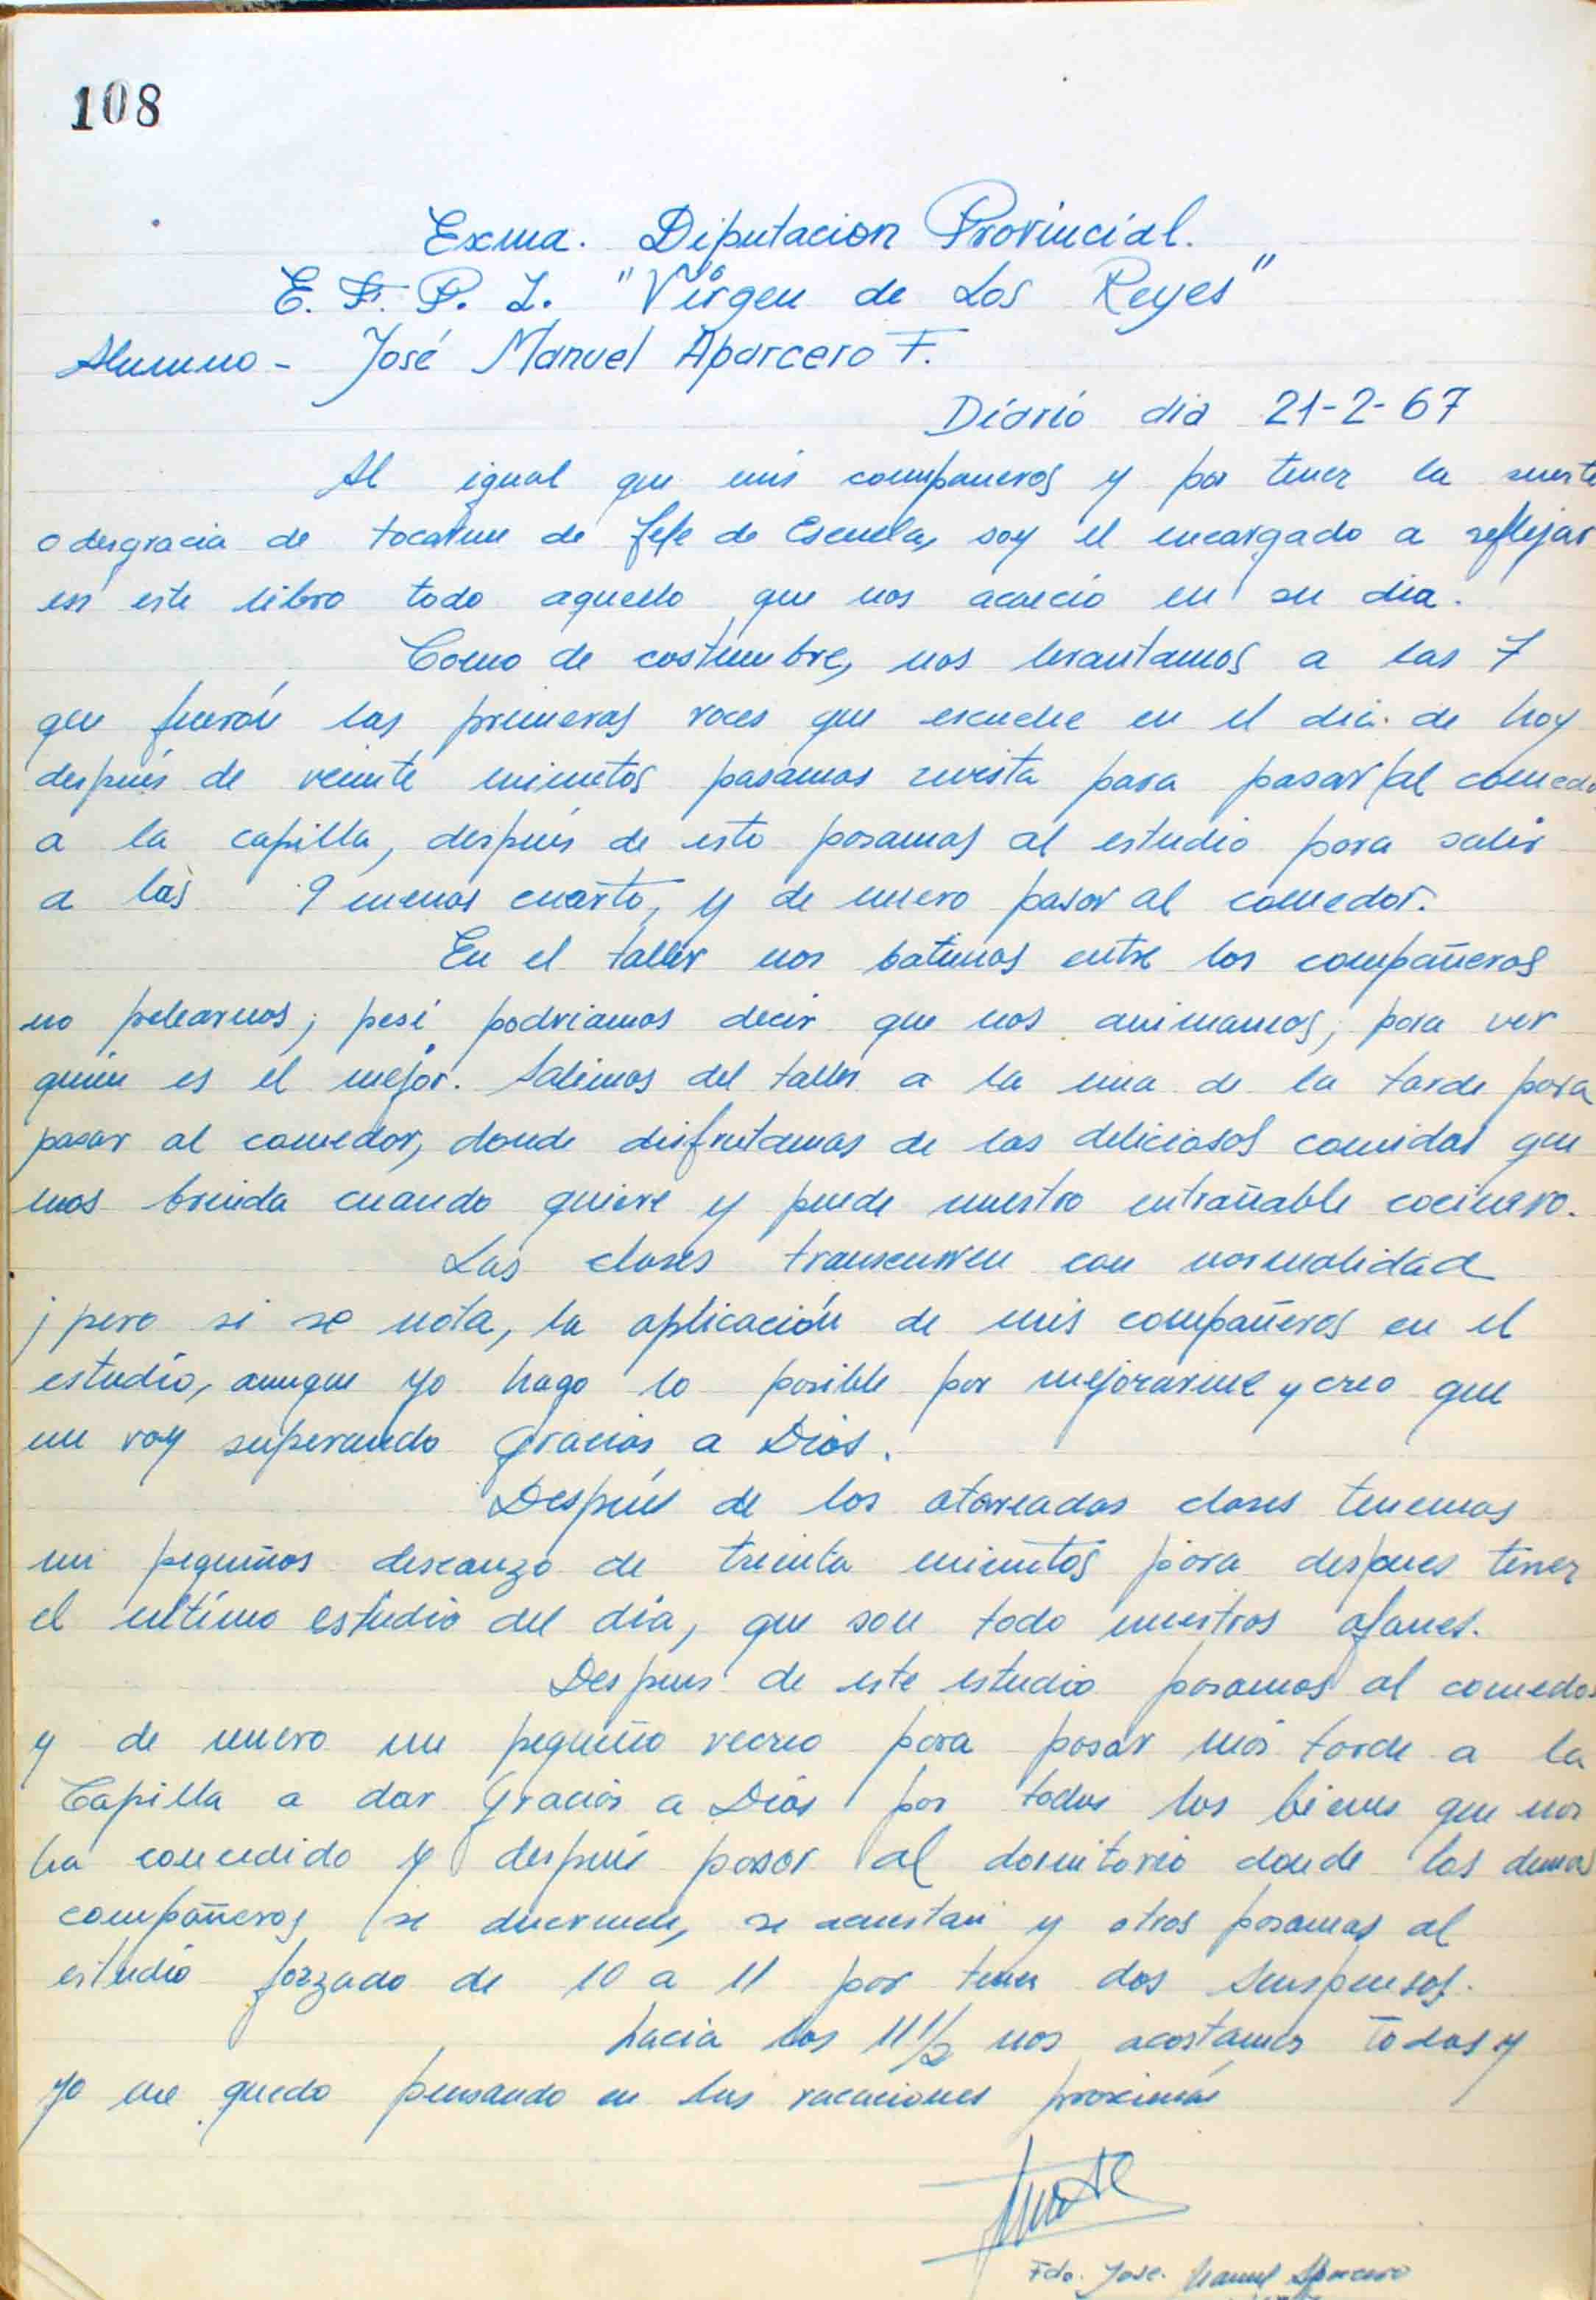 108
Exma. Diputacion Provincial.
E. F. P. I. "Virgen de Los Reyes"
Alumno - José Manuel Aparcero F.
Diário dia 21-2-67
Al igual que mis compañeros y por tener la suerte
o desgracia de tocarme de Jefe de Escuela, soy el encargado a reflejar
en este libro todo aquello que nos acaeció en su dia.
Como de costumbre, nos levantamos a las 7
que fuerón las primeras voces que escuche en el dia de hoy
después de veinte minutos pasamos revista para pasar al comedor
a la capilla, después de esto pasamos al estudio para salir
a las 9 menos cuarto, y de nuevo pasar al comedor.
En el taller nos batimos entre los compañeros
no pelearnos; pesi podriamos decir que nos animamos; para ver
quien es el mejor. Salimos del taller a la una de la tarde para
pasar al comedor, donde disfrutamos de las deliciosas comidas que
nos brinda cuando quiere y puede nuestro entrañable cocinero.
Las clases transcurren con normalidad
; pero si se nota, la aplicación de mis compañeros en el
estudio, aunque yo hago lo posible por mejorarme y creo que
me voy superando gracias a Dios.
Después de los atareadas clases tenemos
un pequeños descanzo de treinta minutos para despues tener
el ultimo estudio del dia, que son todo nuestros afanes.
Despues de este estudio pasamos al comedor
y de nuevo un pequeño recreo para pasar más tarde a la
Capilla a dar gracias a Dios por todos los bienes que nos
ha concedido y después pasar al dormitorio donde los demas
compañeros se duermen, se acuestan y otros pasamos al
estudio forzado de 10 a 11 por tener dos suspensos.
hacia las 11½ nos acostamos todos y
yo me quedo pensando en las vacaciones proximas
Fdo. Jose. Manuel Aparcero